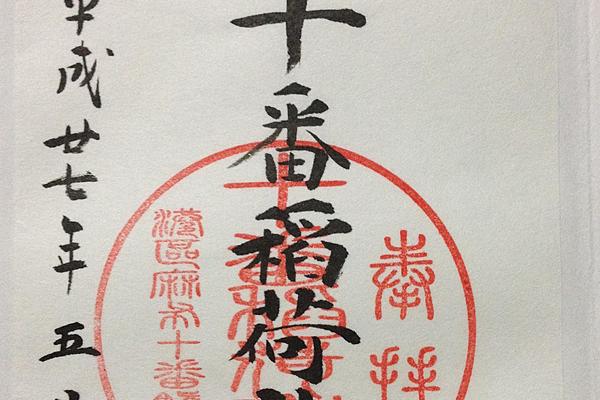 奉拝
十番稲荷
港区麻布十番
平成廿七年五